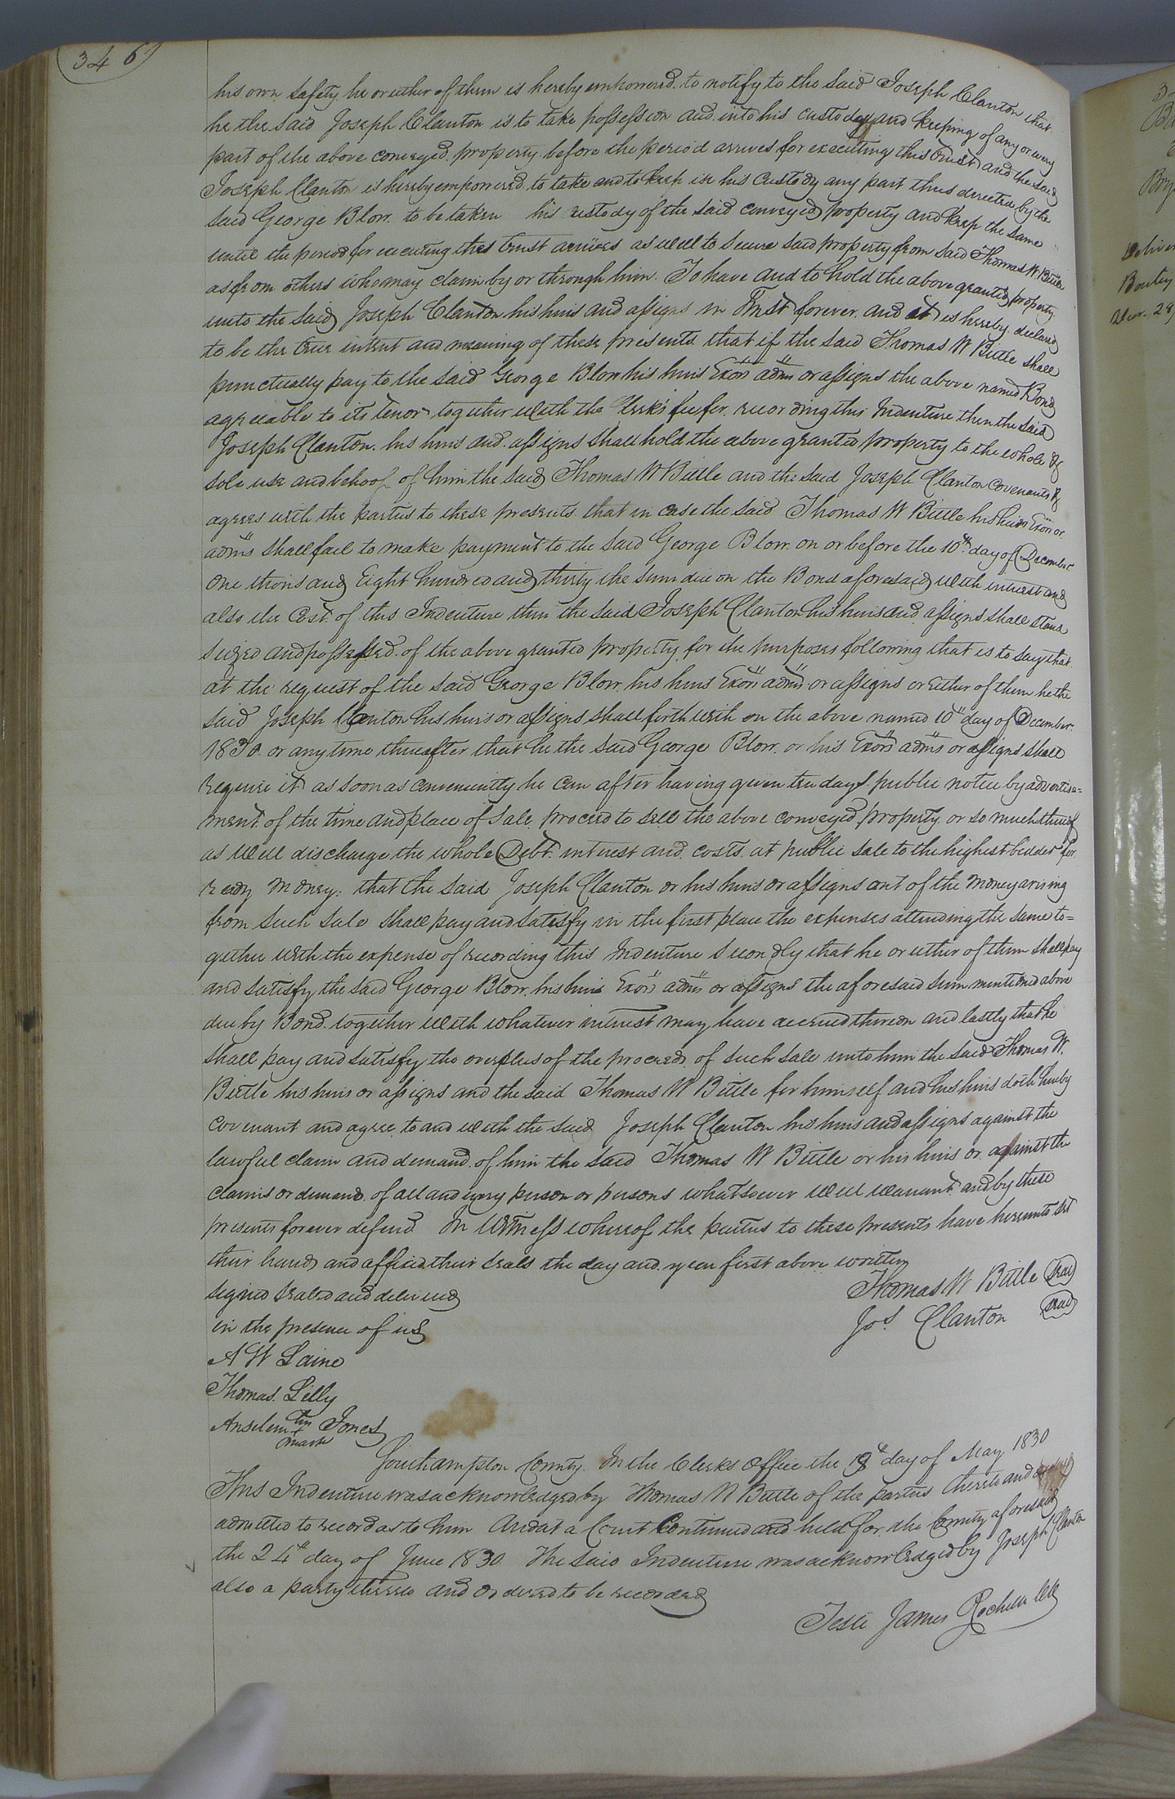 346
his own safety he or either of them is hereby empowered to notify to the said Joseph Clanton that
he the said Joseph Clanton is to take possession and into his custody and keeping of any or every
part of the above conveyed property before the period arrives for executing this Trust and the said
Joseph Clanton is hereby empowered to take and to keep in his Custody any part thus directed by the
said George Blow to be taken his custody of the said conveyed property and keep the same
until the period for executing this trust arrives as well to secure said property from said Thomas W Bittle
as from others who may claim by or through him. To have and to hold the above granted property
unto the said Joseph Clanton his heirs and assigns in Trust forever and it is hereby declared
to be the true intent and meaning of these presents that if the said Thomas W Bittle shall
punctually pay to the said George Blow his heirs Exors adms or assigns the above named Bond
agreeable to its tenor together with the Clerk's fee for recording this Indenture then the said
Joseph Clanton his heirs and assigns shall hold the above granted property to the whole &
sole use and behoof of him the said Thomas W Bittle and the said Joseph Clanton Covenants &
agrees with the parties to these presents that in case the said Thomas W Bittle his heirs Exors or
adms shall fail to make payment to the said George Blow on or before the 10th day of December
One thousand Eight hundred and thirty the sum due on the Bond aforesaid with interest and
also the Cost of this Indenture then the said Joseph Clanton his heirs and assigns shall stand
seized and possessed of the above granted property for the purposes following that is to say that
at the request of the said George Blow his heirs Exors adms or assigns or either of them he the
said Joseph Clanton his heirs or assigns shall forthwith on the above named 10th day of December
1830 or anytime thereafter that he the said George Blow or his Exors adms or assigns shall
require it as soon as conveniently he can after having given ten days public notice by advertise=
ment of the time and place of sale proceed to sell the above conveyed property or so much thereof
as will discharge the whole Debt interest and costs at public sale to the highest bidder for
ready money: that the said Joseph Clanton or his heirs or assigns out of the money arising
from such sale shall pay and satisfy in the first place the expenses attending the same to=
gether with the expense of recording this Indenture secondly that he or either of them shall pay
and satisfy the said George Blow his heirs Exors adms or assigns the aforesaid sum mentioned above
due by Bond together with whatever interest may have accrued thereon and lastly that he
shall pay and satisfy the overplus of the proceeds of such sale unto him the said Thomas W.
Bittle his heirs or assigns and the said Thomas W Bittle for himself and his heirs doth hereby
Covenant and agree to and with the said Joseph Clanton his heirs and assigns against the
lawful claim and demand of him the said Thomas W Bittle or his heirs or against the
claims or demand of all and every person or persons whatsoever will warrant and by these
presents forever defend In Witness whereof the parties to these presents have hereunto set
their hands and affixed their seals the day and year first above written
signed sealed and delivered
Thomas W Bittle seal
in the presence of us
Jos. Clanton seal
A W Laine
Thomas Lilly
Anselm his Jones
mark
Southampton County In the Clerks Office the 18th day of May 1830
This Indenture was acknowledged by Thomas W Bittle of the parties thereto and
admitted to record as to him And at a Court Continued and held for the County aforesaid
the 24th day of June 1830 The said Indenture was acknowledged by Joseph Clanton
also a party thereto and ordered to be recorded
Teste James Rochelle Clk